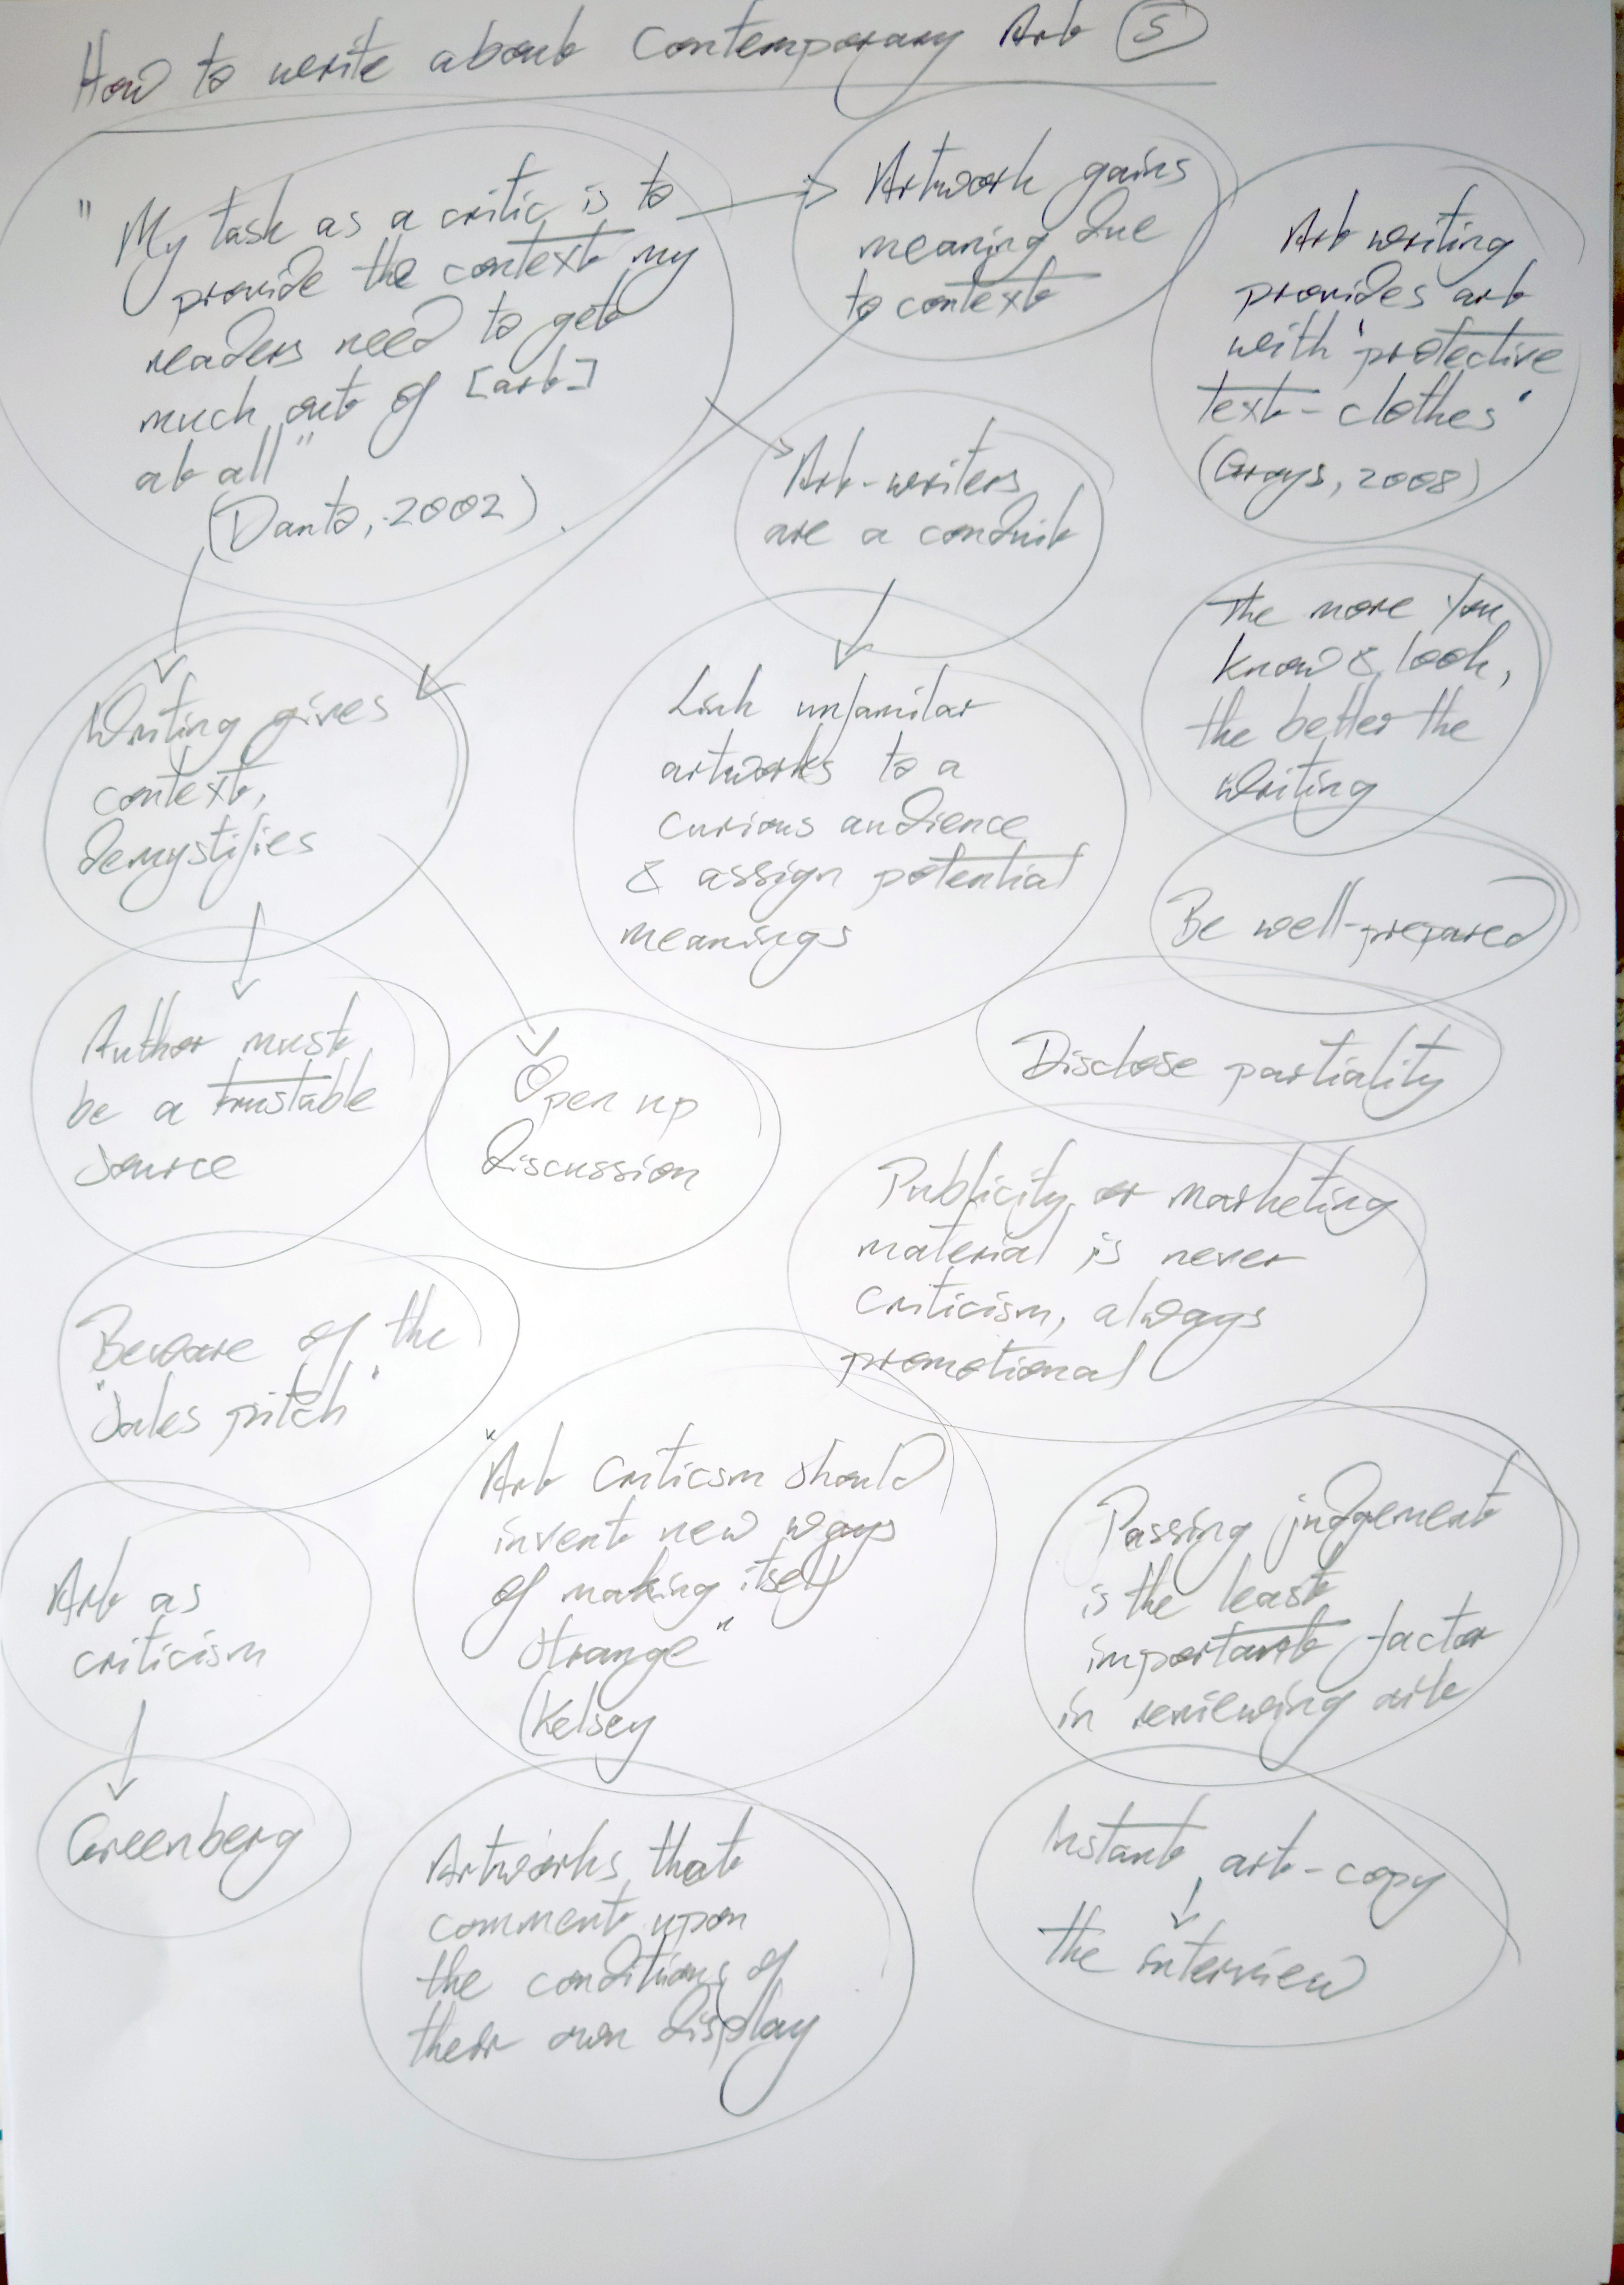 How to write about Contemporary Art 5
"My task as a critic is to
provide the context my
readers need to get
much out of [art]
at all"
(Danto, 2002)
Artwork gains
meaning due
to context
Art writing
provides art
with 'protective
text-clothes'
(Groys, 2008)
Art-writers
are a conduit
The more you
know & look,
the better the
writing
Writing gives
context,
demystifies
Link unfamilar
artworks to a
curious audience
& assign potential
meanings
Be well-prepared
Author must
be a trustable
source
Open up
discussion
Disclose partiality
Publicity or marketing
material is never
criticism, always
promotional
Beware of the
"sales pitch"
"Art criticsm should
invent new ways
of making itself
strange"
(Kelsey
Passing judgement
is the least
important factor
in reviewing art
Art as
criticism
Greenberg
Artworks that
comment upon
the conditions of
their own display
Instant art-copy
the interview